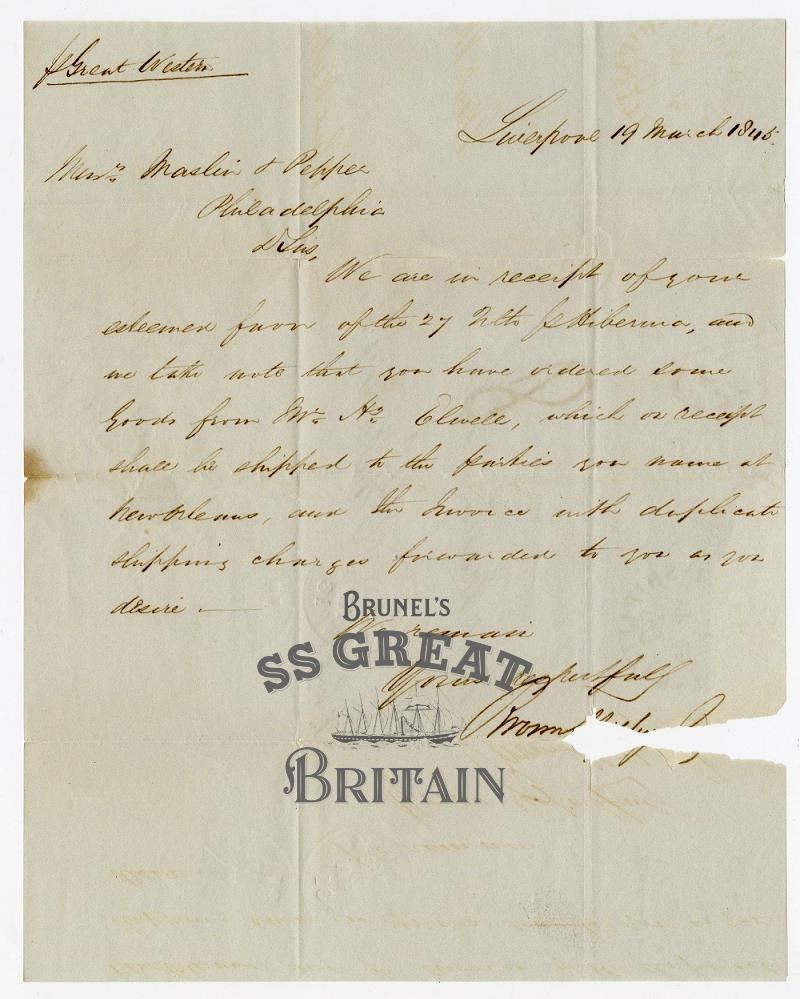 p Great Western
Liverpool 19 March 1845.
Messrs Maslin & Pepper
Philadelphia
D Sirs,
We are in receipt of your
esteemed favor of the 27 Ulto p Hibernia, and
we take note that you have ordered some
goods from Mr. Elwell, which on receipt
shall be shipped to the parties you name at
New Orleans, and the Invoice with duplicate
shipping charges forwarded to you as you
desire —
We remain
Yours respectfully
Brown
BRUNEL'S
SS GREAT
BRITAIN